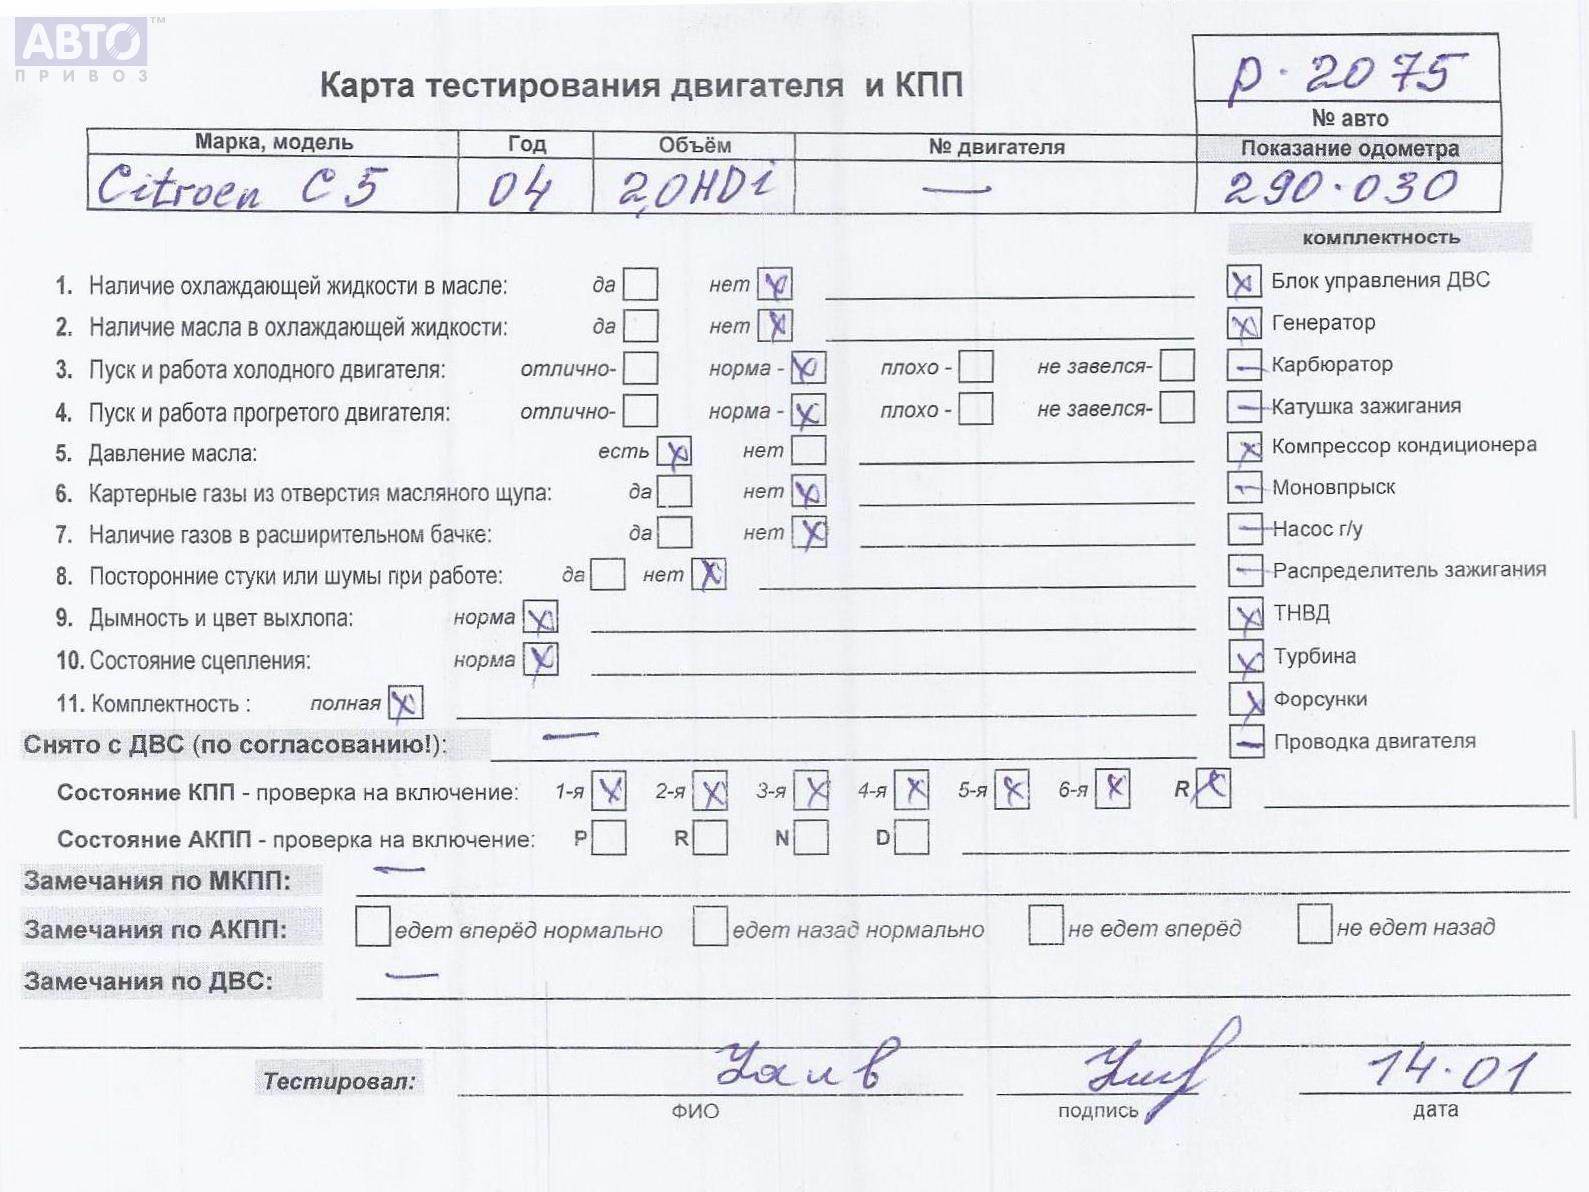 АВТО™
ПРИВОЗ
Карта тестирования двигателя и КПП
р.2075
№ авто
Марка, модель Год Объём № двигателя Показание одометра
Citroen C5 04 2,0HDi — 290.030
комплектность
1. Наличие охлаждающей жидкости в масле: да нет x
x Блок управления ДВС
2. Наличие масла в охлаждающей жидкости: да нет x
x Генератор
3. Пуск и работа холодного двигателя: отлично- норма - x плохо - не завелся-
— Карбюратор
4. Пуск и работа прогретого двигателя: отлично- норма - x плохо - не завелся-
— Катушка зажигания
5. Давление масла: есть x нет
x Компрессор кондиционера
6. Картерные газы из отверстия масляного щупа: да нет x
— Моновпрыск
7. Наличие газов в расширительном бачке: да нет x
— Насос г/у
8. Посторонние стуки или шумы при работе: да нет x
— Распределитель зажигания
9. Дымность и цвет выхлопа: норма x
x ТНВД
10. Состояние сцепления: норма x
x Турбина
11. Комплектность : полная x
x Форсунки
Снято с ДВС (по согласованию!): —
— Проводка двигателя
Состояние КПП - проверка на включение: 1-я x 2-я x 3-я x 4-я x 5-я x 6-я x R x
Состояние АКПП - проверка на включение: P R N D
Замечания по МКПП: —
Замечания по АКПП: едет вперёд нормально едет назад нормально не едет вперёд не едет назад
Замечания по ДВС: —
Тестировал: 14.01
ФИО подпись дата